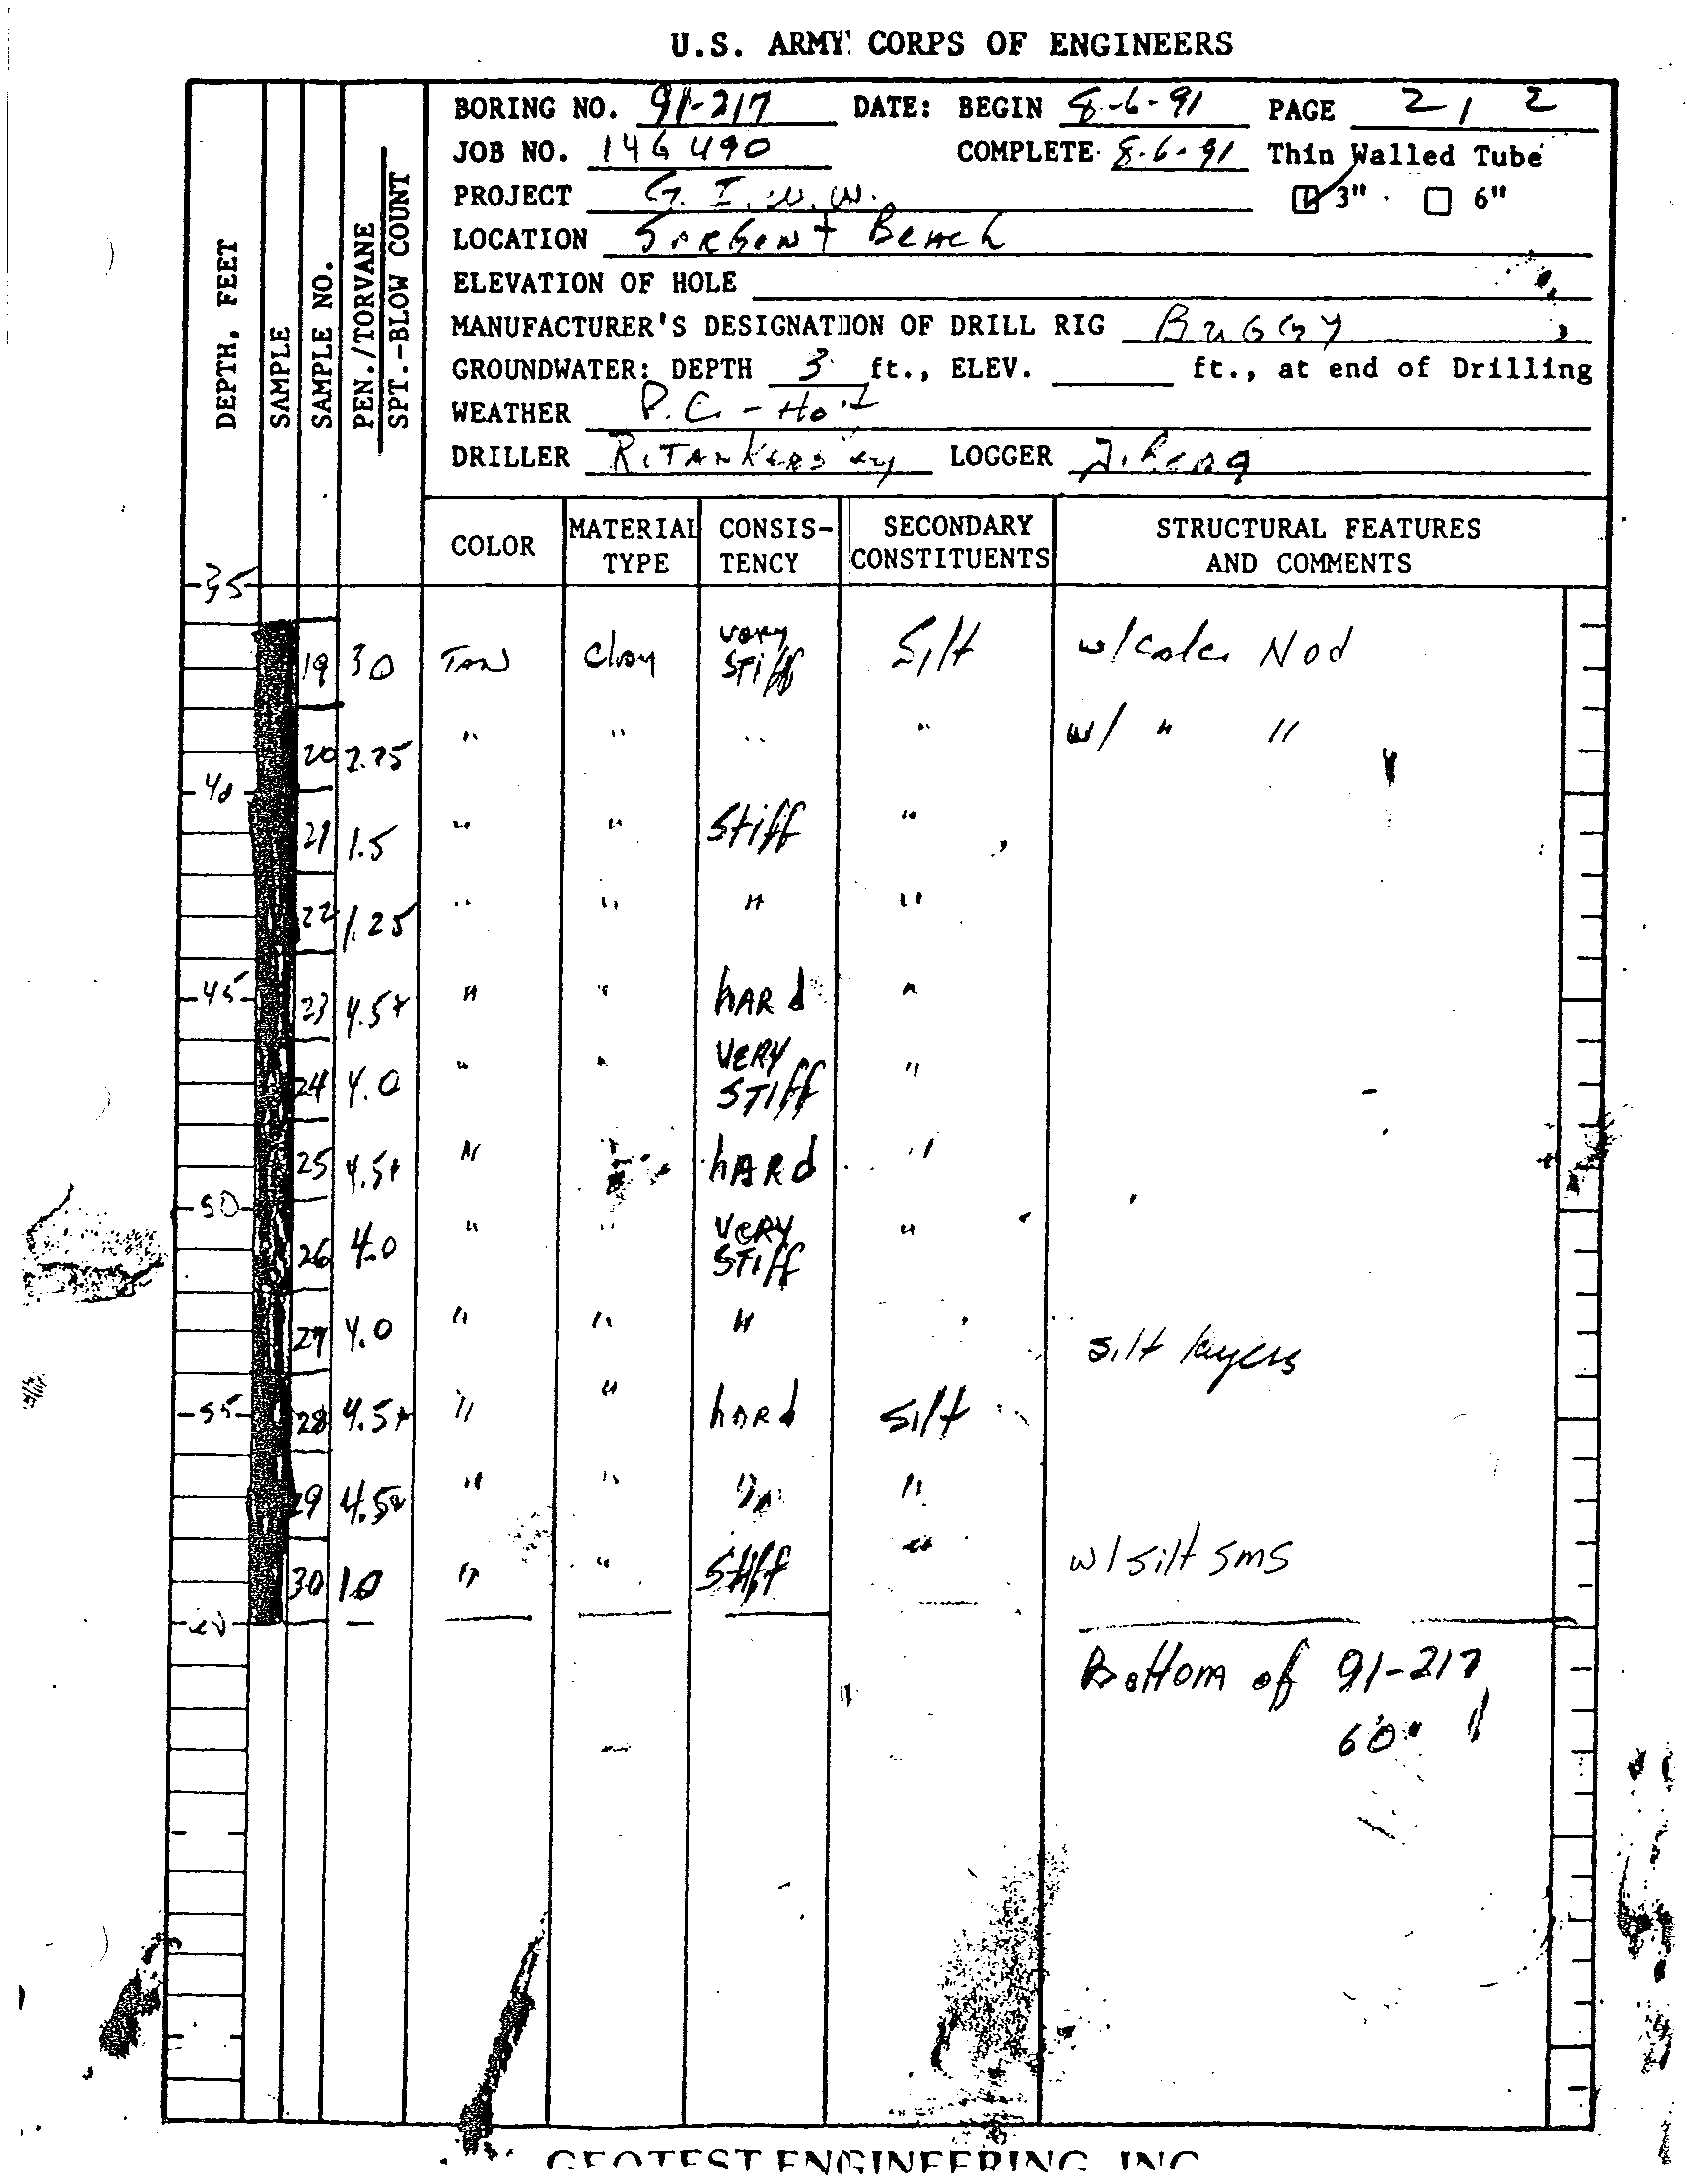 U.S. ARMY CORPS OF ENGINEERS
BORING NO. 91-217 DATE: BEGIN 8-6-91 PAGE 2 / 2
JOB NO. 14G490 COMPLETE 8-6-91 Thin Walled Tube
PROJECT G.I.W.W. 3" 6"
LOCATION SARGENT BEACH
ELEVATION OF HOLE
MANUFACTURER'S DESIGNATION OF DRILL RIG BUGGY
GROUNDWATER: DEPTH 3 ft., ELEV. ft., at end of Drilling
WEATHER P.C. - Hot
DRILLER R. TANKERSLEY LOGGER
DEPTH, FEET
SAMPLE
SAMPLE NO.
PEN./TORVANE
SPT.-BLOW COUNT
COLOR MATERIAL TYPE CONSIS-TENCY SECONDARY CONSTITUENTS STRUCTURAL FEATURES AND COMMENTS
35
19 3.0 TAN clay very STiff Silt w/calc. Nod
20 2.75 " " " " w/ " "
40
21 1.5 " " Stiff "
22 1.25 " " " "
45
23 4.5+ " " hARd "
24 4.0 " " VERY STIff "
25 4.5+ " hARd "
50
26 4.0 " " VERY STIff "
27 4.0 " " " silt layers
55
28 4.5+ " " hARd silt
29 4.5+ " " " "
30 1.0 " " Stiff " w/silt sms
60
Bottom of 91-217
60'
GEOTEST ENGINEERING, INC.